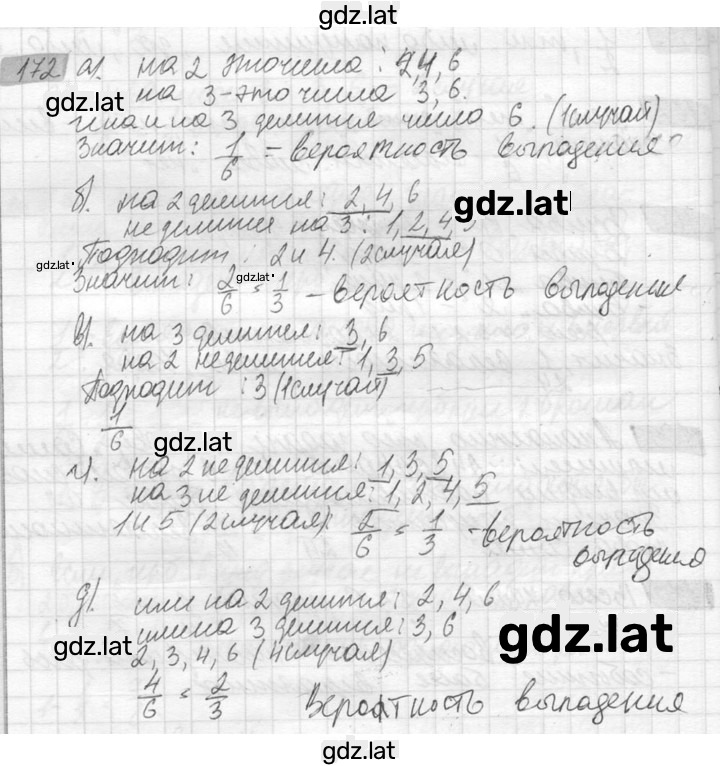 gdz.lat
172 а). на 2 это числа: 2,4,6
gdz.lat
на 3-это числа 3,6.
и на и на 3 делится число 6. (1случай)
Значит: 1/6 - вероятность выпадения
б). на 2 делится: 2,4,6
gdz.lat
не делится на 3: 1,2,4,5
Подходит: 2 и 4. (2случая)
gdz.lat
gdz.lat
Значит: 2/6 = 1/3 - вероятность выпадения
в). на 3 делится: 3,6
на 2 не делится: 1,3,5
Подходит: 3 (1случай)
1/6
gdz.lat
г). на 2 не делится: 1,3,5
на 3 не делится: 1,2,4,5
1 и 5 (2случая): 2/6 = 1/3 - вероятность
выпадения
д). или на 2 делится: 2,4,6
или на 3 делится: 3,6
gdz.lat
gdz.lat
2,3,4,6 (4случая)
4/6 = 2/3 Вероятность выпадения
gdz.lat